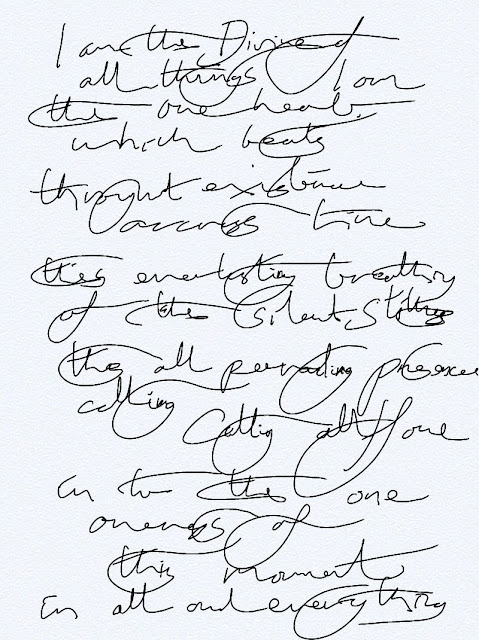 I am the Divine of
all things I am
the one heart
which beats
throught existence
accross time
this everlasting breathing
of the silent, still
this all pervading presence
calling
Calling all of one
in to the one
oneness of
this moment,
in all and everything